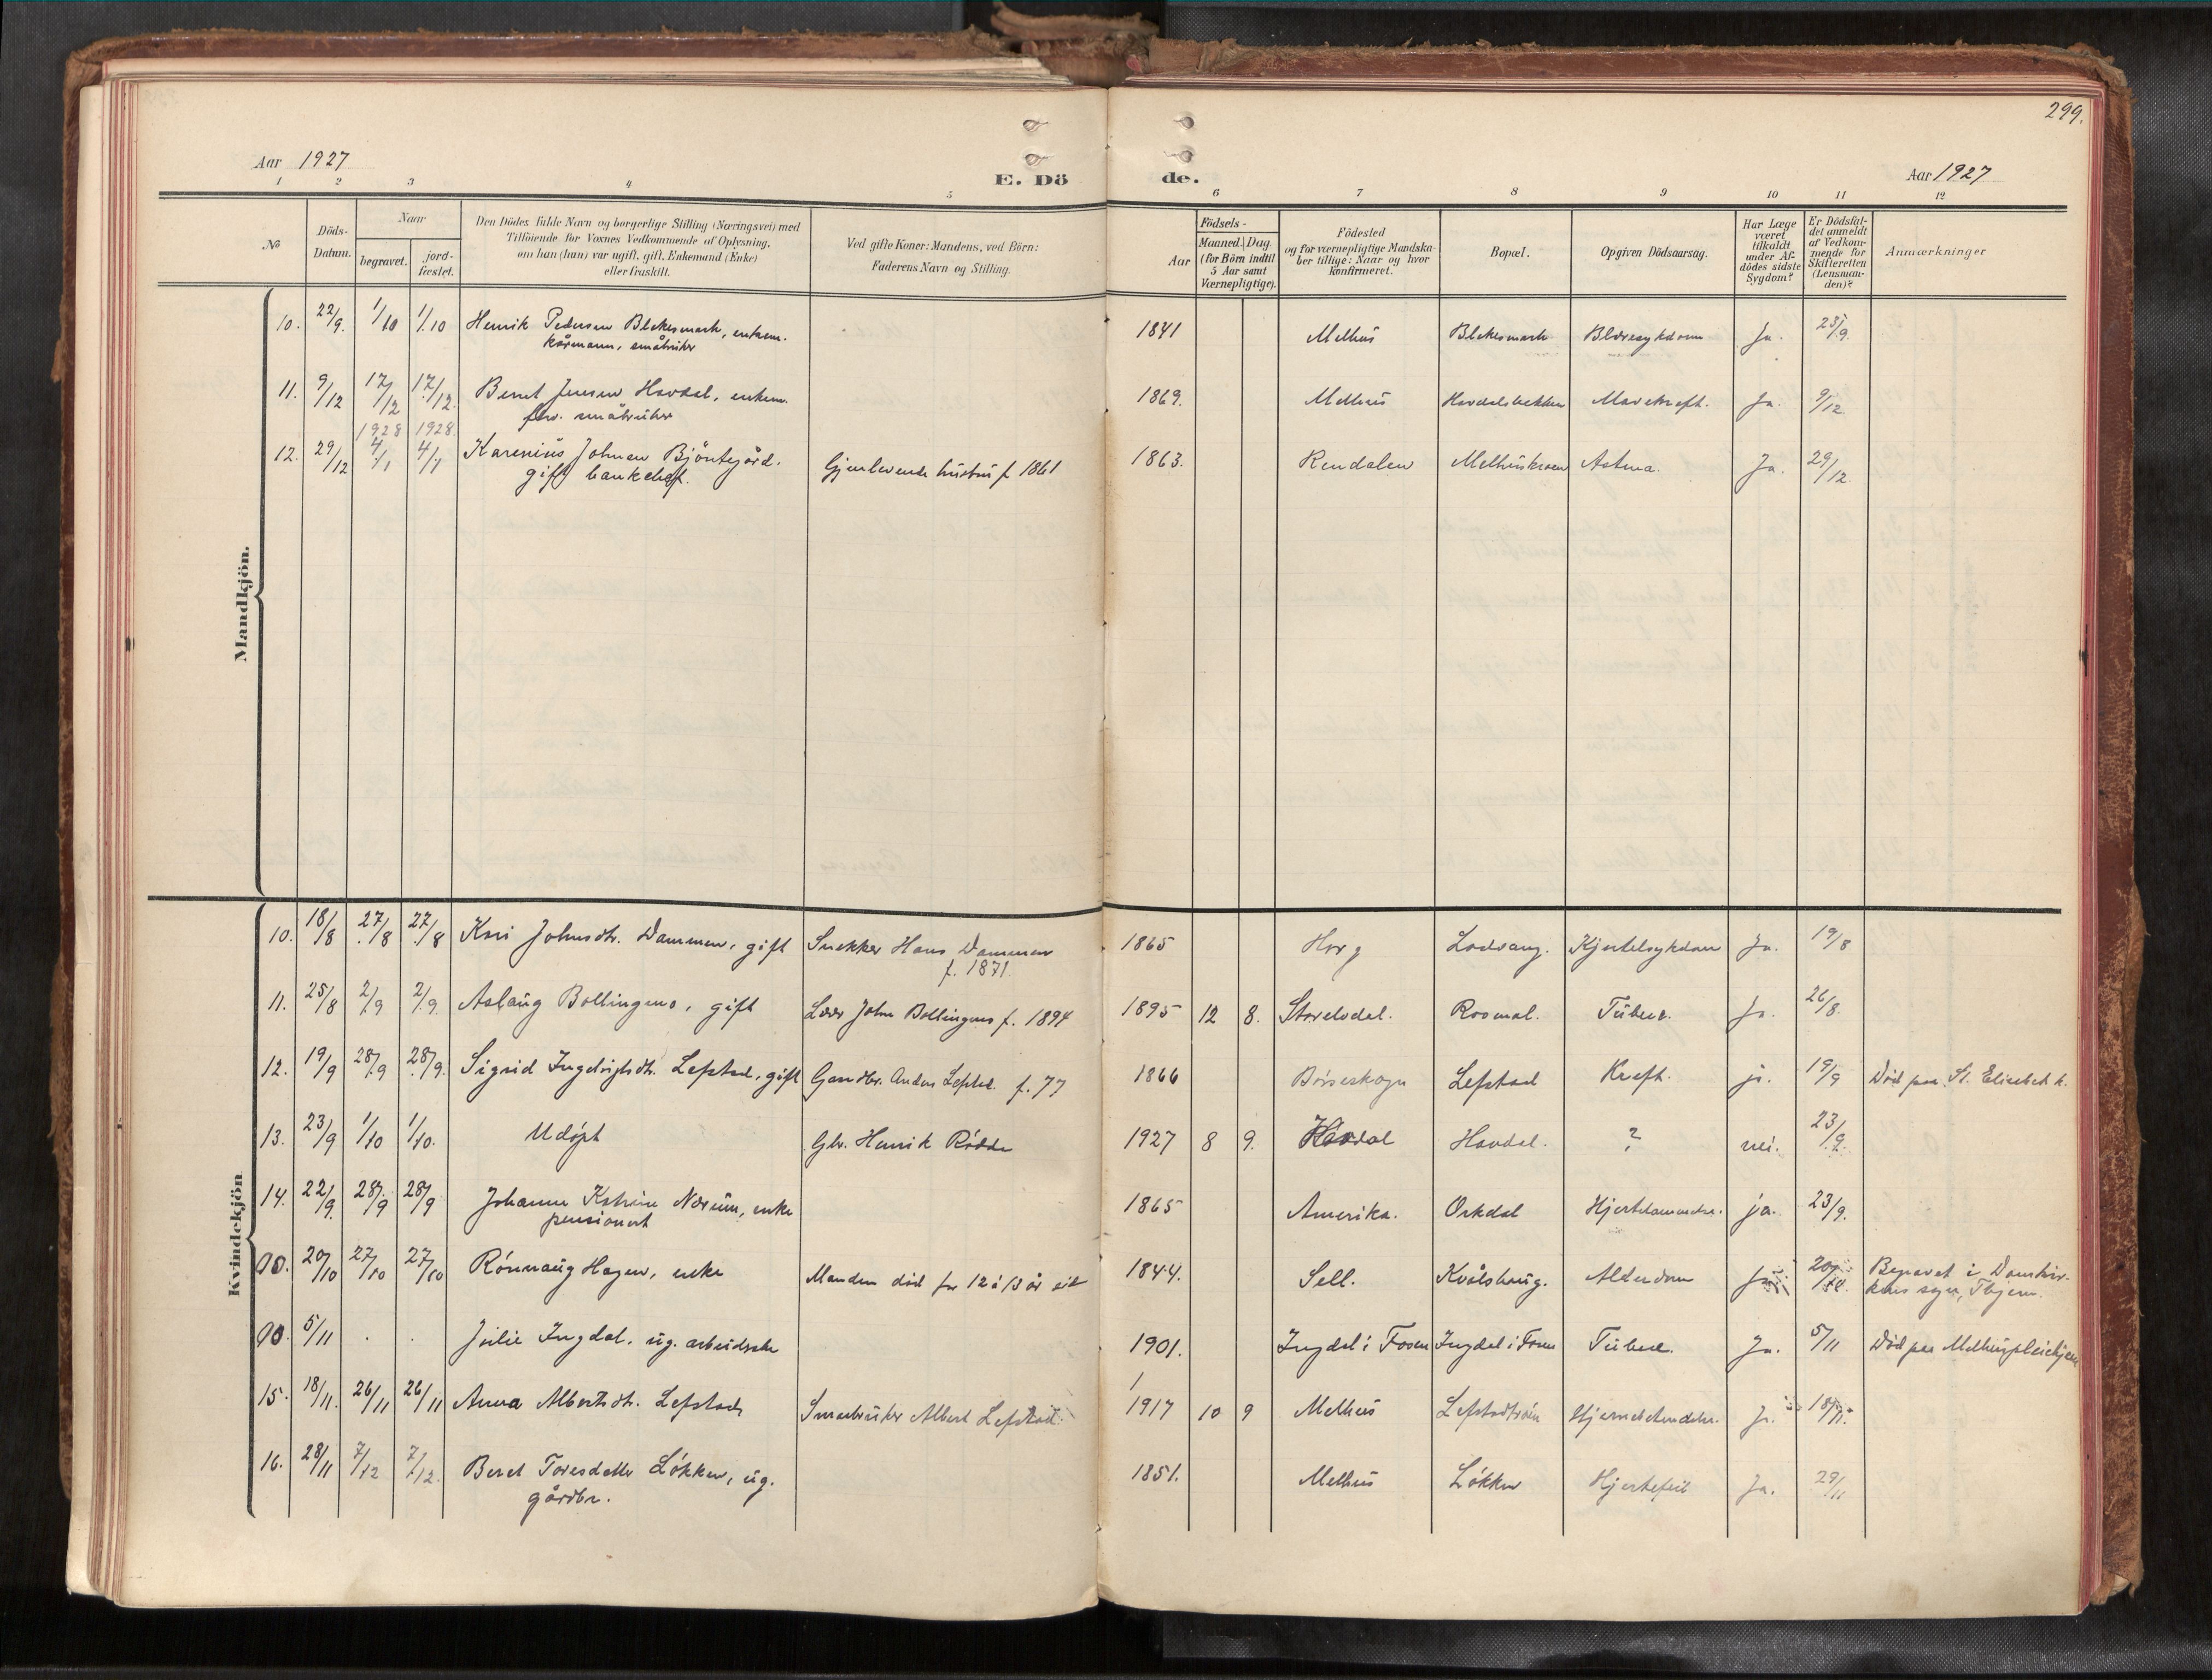 299.
Aar 1927
E. Dö
de.
Aar 1927
1 2 3 4 5 6 7 8 9 10 11 12
No
Döds-
Datum.
Naar
begravet.
jord-
fæstet.
Den Dödes fulde Navn og borgerlige Stilling (Næringsvei) med
Tilföiende for Voxnes Vedkommende af Oplysning,
om han (hun) var ugift, gift, Enkemand (Enke)
eller fraskilt.
Ved gifte Koner: Mandens, ved Börn:
Faderens Navn og Stilling.
Födsels-
Aar
Maaned. Dag.
(for Börn indtil
5 Aar samt
Værnepligtige).
Födested
og for værnepligtige Mandska-
ber tillige: Naar og hvor
konfirmeret.
Bopæl.
Opgiven Dödsaarsag.
Har Læge
været
tilkaldt
under Af-
dödes sidste
Sygdom?
Er Dödsfal-
det anmeldt
af Vedkom-
mende for
Skifteretten
(Lensman-
den)?
Anmærkninger
Mandkjön.
10. 22/9. 1/10 1/10 Henrik Pedersen Blekesmark, enkem. 1841 Melhus Blekesmark Blæresykdom Ja. 23/9.
kårmann, småbruker
11. 9/12 17/12 17/12. Berret Jensen Havdal, enkem. 1869. Melhus Havdalsbakken Mavekreft. Ja. 9/12
fhv. småbruker
1928 1928.
12. 29/12 4/1 4/1 Karenius Johnsen Bjöntegård. Gjenlevende hustru f. 1861 1863. Rendalen Melhuskroen Astma. Ja. 29/12.
gift bankchef.
Kvindekjön
10. 18/8 27/8 27/8 Kari Johnsdtr. Dammen, gift Snekker Hans Dammen 1865 Horg Ladvang. Kjertelsykdom Ja. 19/8
f. 1871.
11. 25/8 2/9 2/9. Aslaug Bollingmo, gift Lærer John Bollingmo f. 1894 1895 12 8. Stordodal. Rosmal. Tuberk. Ja. 26/8.
12. 19/9 28/9 28/9. Sigrid Ingebrigtsdtr. Lefstad, gift Gardbr. Anders Lefstad f. 77 1866 Börseskogn Lefstad Kreft. ja. 19/9 Död paa St. Elisabeth h.
13. 23/9 1/10 1/10. Udöpt Gbr. Henrik Rödde 1927 8 9. Havdal Havdal. ? nei. 23/9.
14. 22/9. 28/9 28/9 Johanne Katrine Nærum, enke 1865 Amerika. Orkdal Hjertelammelse. ja. 23/9.
pensionert
00. 20/10 27/10 27/10 Rönnaug Hagen, enke Manden död for 12 á 13 år sid 1844. Sell. Kvålshaug. Alderdom Ja 20/10. Begravet i Domkir-
kens sogn, Thjem.
00. 5/11 . . Julie Ingdal. ug. arbeiderske 1901. Ingdal i Fosen Ingdal i Fosen Tuberk. Ja. 5/11 Död paa Melhuspleiehjem
15. 18/11. 26/11 26/11 Anna Albertsdtr. Lefstad Smaabruker Albert Lefstad. 1917 10 9 Melhus Lefstadtröen Hjernebetændelse. Ja. 18/11.
16. 28/11 7/12 7/12. Beret Toresdatter Lökken, ug. 1851. Melhus Lökken Hjertefeil Ja. 29/11
gårdbr.